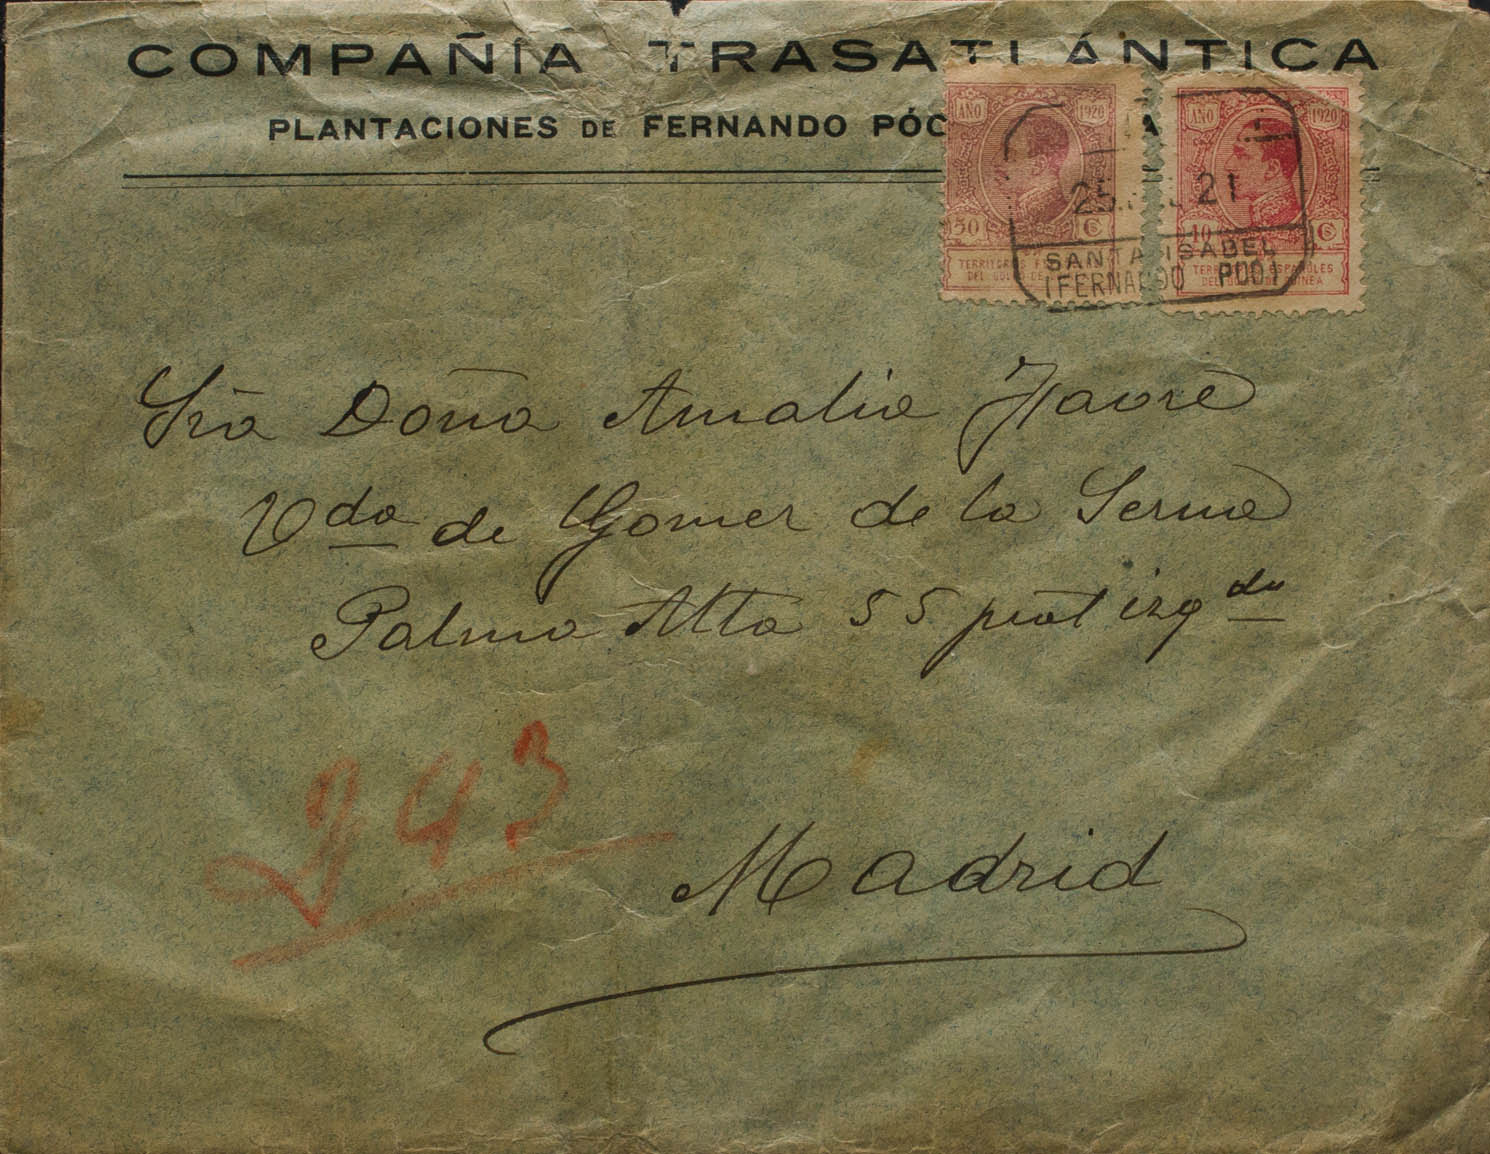 COMPAÑÍA TRASATLÁNTICA
PLANTACIONES DE FERNANDO PÓO
AÑO 1920
AÑO 1920
25. 21
50 Cs
10 Cs
SANTA ISABEL
(FERNANDO POO)
TERRITORIOS ESPAÑOLES
DEL GOLFO DE GUINEA
TERRITORIOS ESPAÑOLES
DEL GOLFO DE GUINEA
Sra Doña Amalia Favre
Vda de Gomez de la Serna
Palma Alta 55 pral izqda
243
Madrid